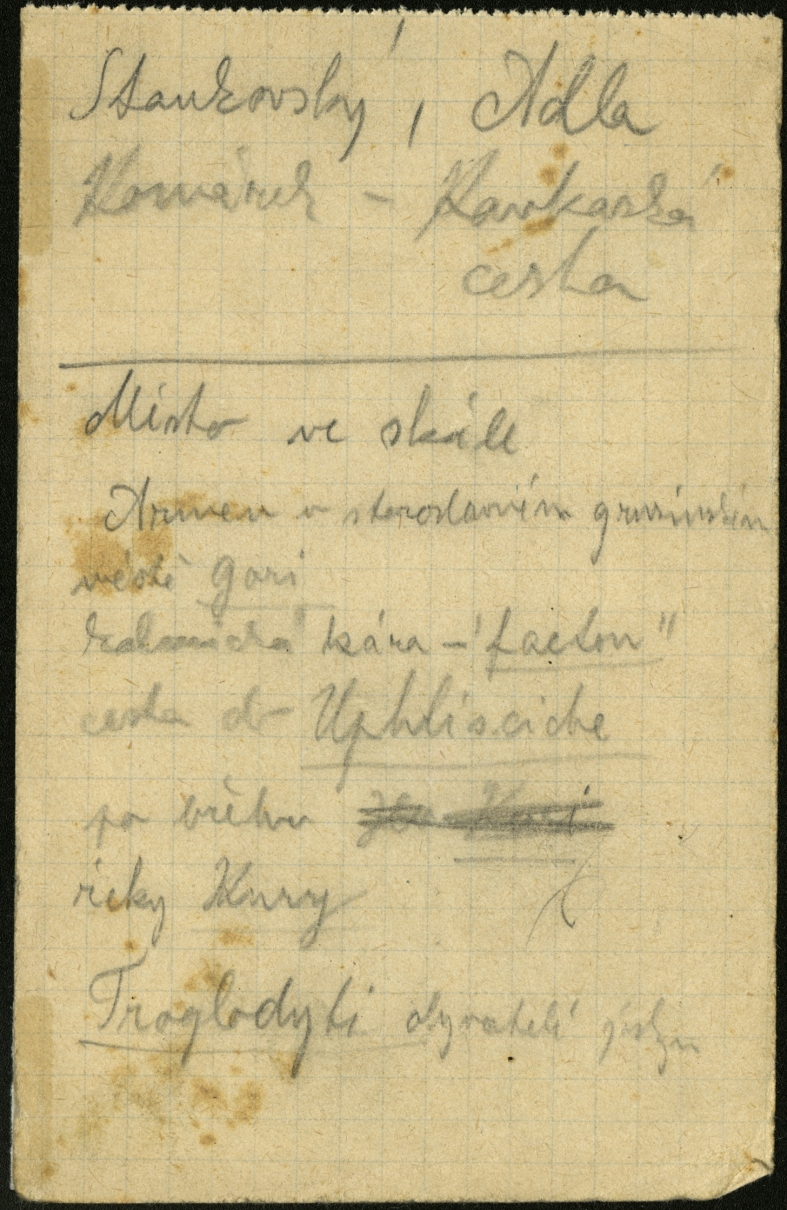 Stankovský, Adla
Komárek – Kavkazská
cesta
Místo ve skále
Armen v staroslavném gruzinském
městě Gori
kára – "faeton"
cesta do Uphlisciche
po břehu
řeky Kury
Troglodyti obyvatelé jeskyn